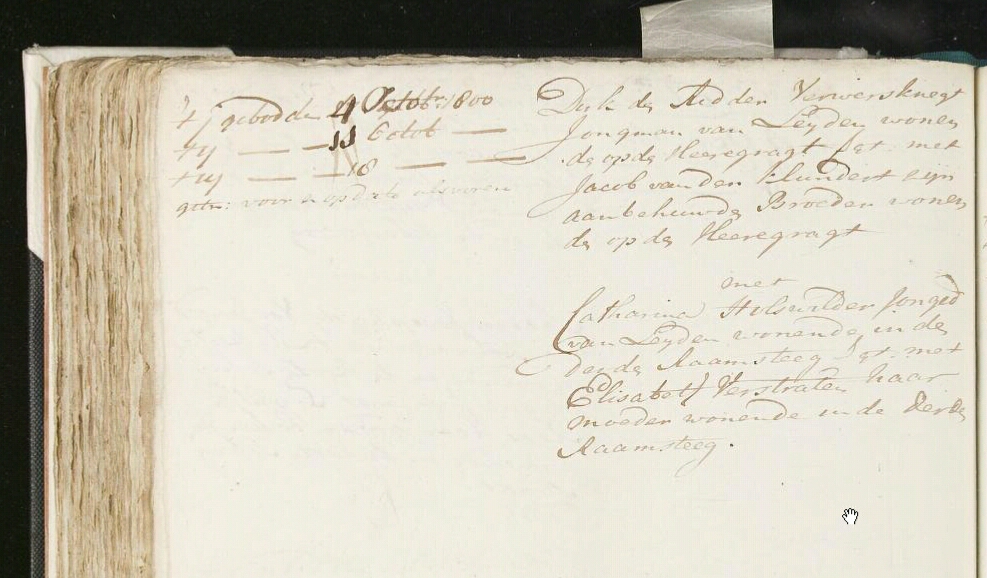 't 1 gebod den 4 Octob: 1800
't 2 — — 11 Octob —
't 3 — — 18 — —
getr: voor schepen dato alsvoren
Dirk de Ridder Verwersknegt
Jongman van Leyden wonen
de op de Heeregragt get: met
Jacob van den Hundert zijn
aanbehuwde Broeder wonen
de op de Heeregragt
met
Catharina Holswilder Jonged
van Leyden wonende in de
derde Raamsteeg get: met
Elisabeth Verstraten haar
moeder wonende in de derde
Raamsteeg.